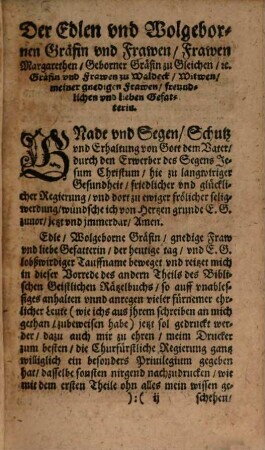 Der Edlen vnd Wolgebor-
nen Gräfin vnd Frawen / Frawen
Margarethen / Geborner Gräfin zu Gleichen / ꝛc.
Gräfin vnd Frawen zu Waldeck / Witwen /
meiner gnedigen Frawen / freund-
lichen vnd lieben Gefat-
terin.
GNade vnd Segen / Schutz
vnd Erhaltung von Gott dem Vater /
durch den Erwerber des Segens Je-
sum Christum / hie zu langwiriger
Gesundheit / friedlicher vnd glückli-
cher Regierung / vnd dort zu ewiger frölicher selig-
werdung / wündsche ich von Hertzen grunde E. G.
zuuor / jetzt vnd jmmerdar / Amen.
Edle / Wolgeborne Gräfin / gnedige Fraw
vnd liebe Gefatterin / der heutige tag / vnd E. G.
lobßwirdiger Tauffname beweget vnd reitzet mich
in dieser Vorrede des andern Theils des Bibli-
schen Geistlichen Rätzelbuchs / so auff vnables-
siges anhalten vnnd anregen vieler fürnemer ehr-
licher Leute (wie ichs aus jhrem schreiben an mich
gethan / zubeweisen habe) jetzt sol gedruckt wer-
der / dazu auch mir zu ehren / meim Drucker
zum besten / die Churfürstliche Regierung gang
williglich ein besonders Priuilegium gegeben
hat / dasselbe sonsten nirgend nachzudrucken / wie
mit dem ersten Theile ohn alles mein wissen ge-
):( ij schehen /